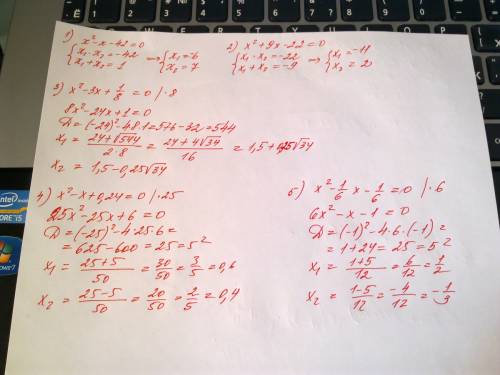 1) x²-x-42=0
{x₁·x₂=-42
x₁+x₂=1
⇒ {x₁=-6
x₂=7
2) x²+9x-22=0
{x₁·x₂=-22
x₁+x₂=-9
⇒ {x₁=-11
x₂=2
3) x²-3x+1/8=0 /·8
8x²-24x+1=0
D=(-24)²-4·8·1=576-32=544
x₁=(24+√544)/(2·8)=(24+4√34)/16=1,5+0,25√34
x₂=1,5-0,25√34
4) x²-x+0,24=0 /·25
25x²-25x+6=0
D=(-25)²-4·25·6=
=625-600=25=5²
x₁=(25+5)/50=30/50=3/5=0,6
x₂=(25-5)/50=20/50=2/5=0,4
5) x²-1/6x-1/6=0 /·6
6x²-x-1=0
D=(-1)²-4·6·(-1)=
=1+24=25=5²
x₁=(1+5)/12=6/12=1/2
x₂=(1-5)/12=-4/12=-1/3
intel
CORE i5